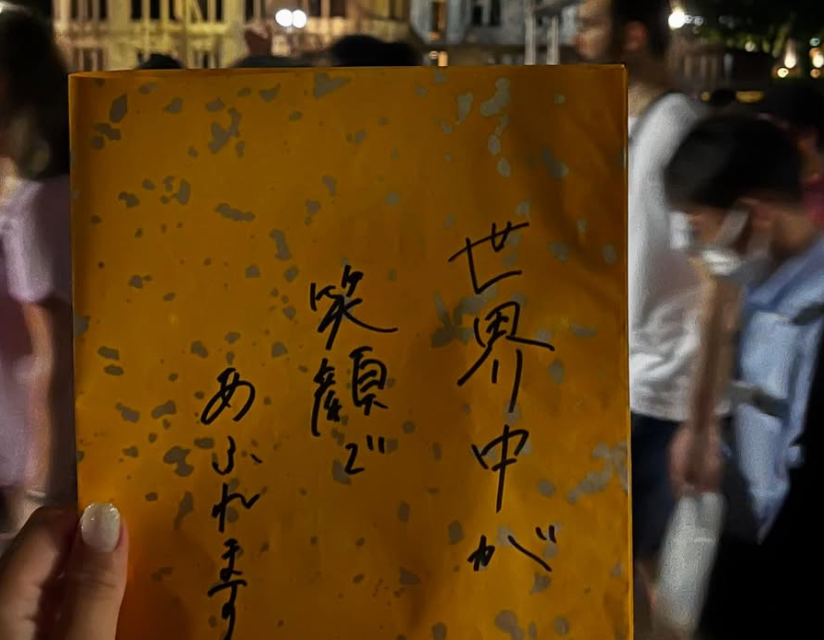 世界中が
笑顔で
あふれます